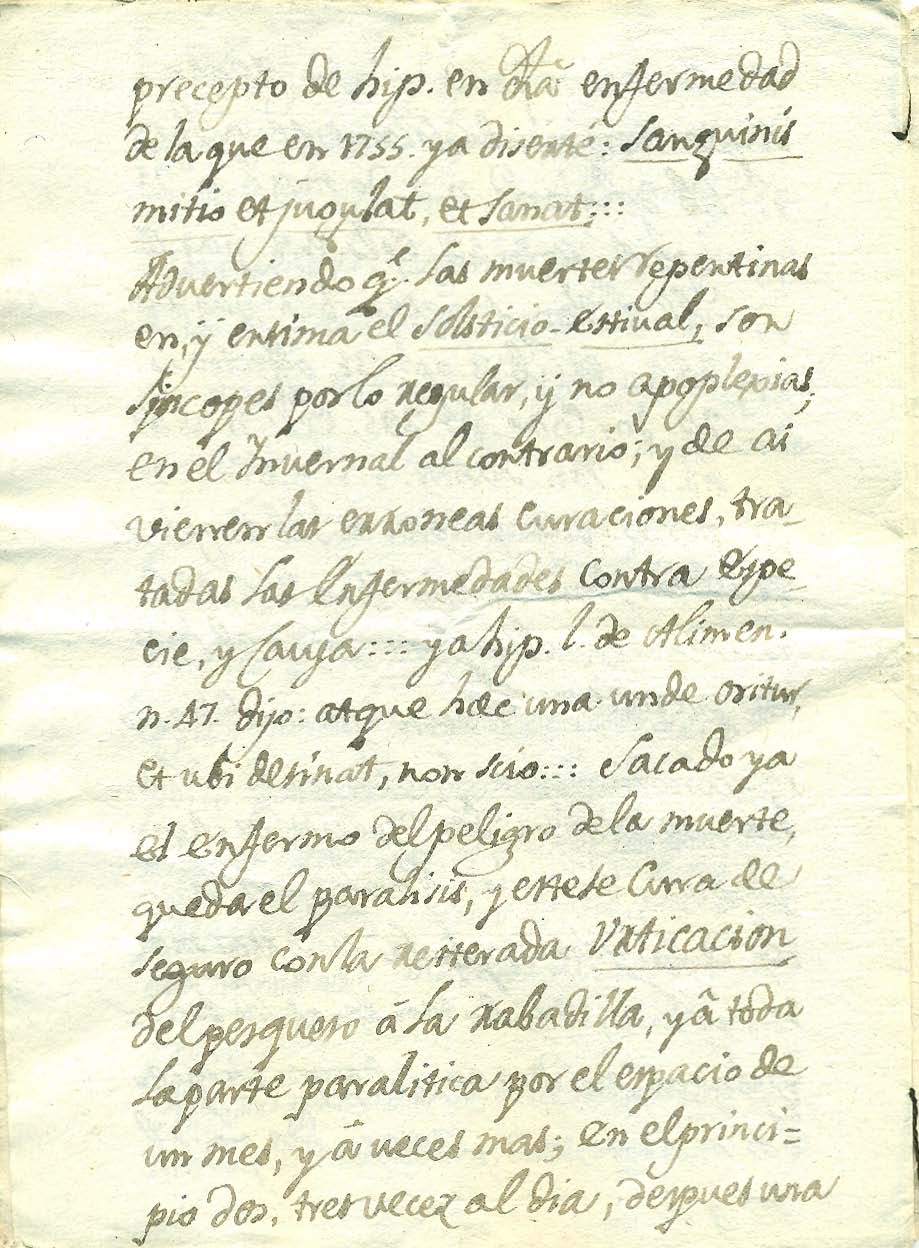 precepto de hip. en dha enfermedad
de la que en 1755. ya diserté: Sanguinis
mitio et juqulat, et Sanat:::
Advertiendo qe. las muertes repentinas
en, ÿ entima el Solsticio-Estival, son
Sincopes por lo regular, ÿ no apoplexias;
en el Invernal al contrario; y de ai
vienen las erroneas curaciones, tra-
tadas las Enfermedades contra Espe-
cie, y Causa::: ya hip. l. de Alimen.
n. 47. dijo: atque hæc una unde oritur,
et ubi desinat, non scio::: Sacado ya
el enfermo del peligro de la muerte,
queda el paralisis, y este se Curra de
seguro con la reiterada Urticacion
del pesquero á la rabadilla, y â toda
la parte parralitica por el espacio de
un mes, y â veces mas; en el princi=
pio dos, tres vecez al dia, despues una